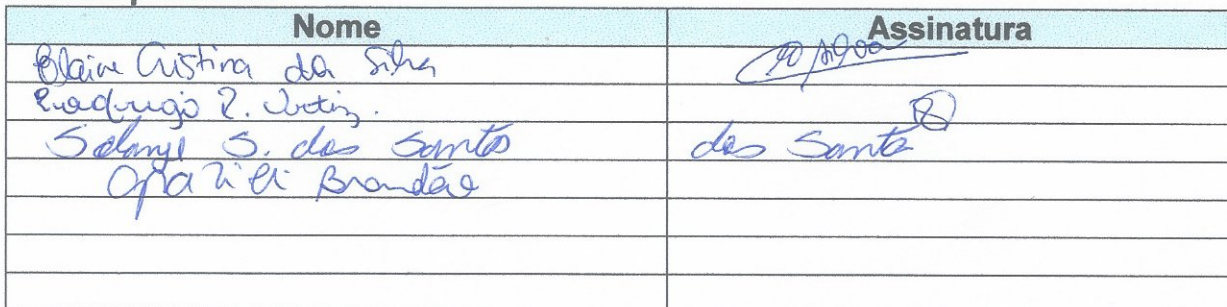 Nome Assinatura
Elaine Cristina da Silva
Rodrigo R. Ortiz.
Solange S. dos Santos dos Santos
Grazieli Brandão